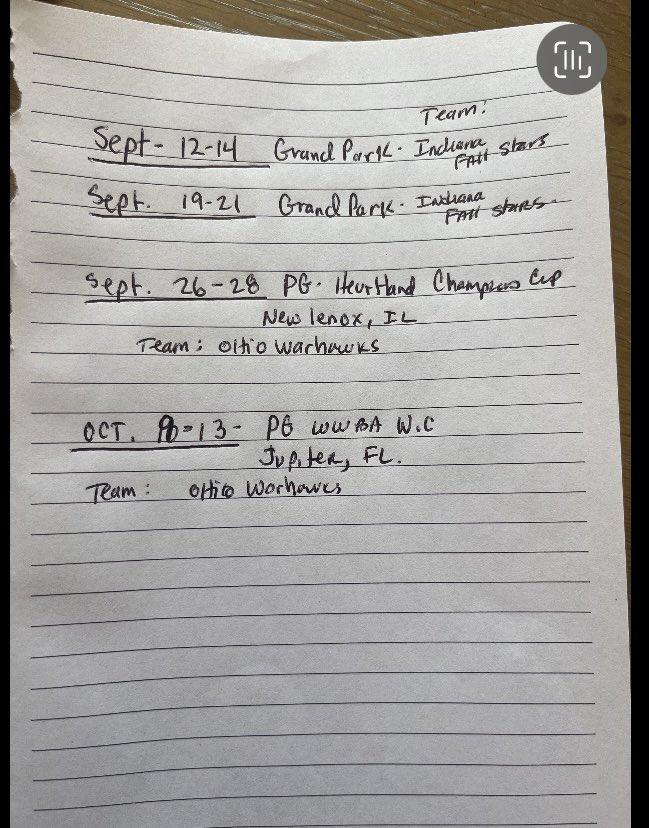 Team:
Sept- 12-14 Grand Park. Indiana
Fall Stars
Sept. 19-21 Grand Park. Indiana
Fall Stars.
Sept. 26-28 PG. Heartland Champions Cup
New lenox, IL
Team: Ohio Warhawks
OCT. -13- PG WWBA W.C
Jupiter, FL.
Team: Ohio Warhawks